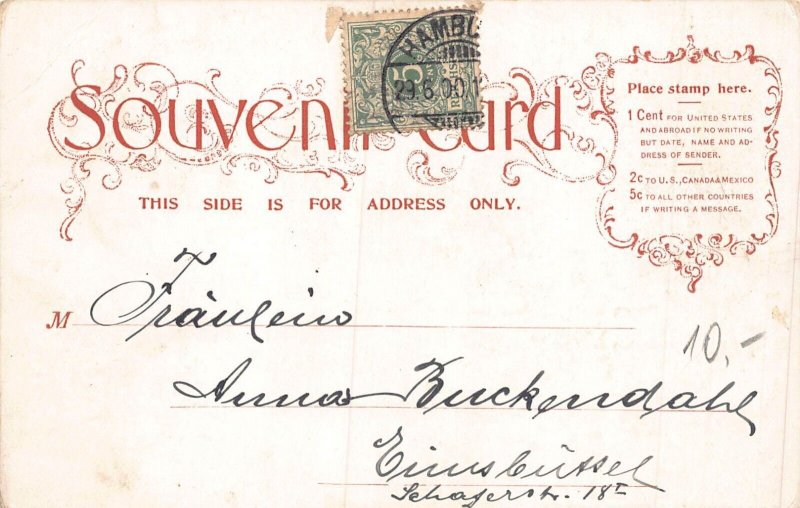 Souvenir Card
THIS SIDE IS FOR ADDRESS ONLY.
Place stamp here.
1 Cent FOR UNITED STATES
AND ABROAD IF NO WRITING
BUT DATE, NAME AND AD-
DRESS OF SENDER.
2c TO U.S., CANADA & MEXICO
5c TO ALL OTHER COUNTRIES
IF WRITING A MESSAGE.
HAMBU
29.6.00.1
5
M Fräulein
10,-
Anna Buckendahl
Eimsbüttel
Schäferstr. 18 I